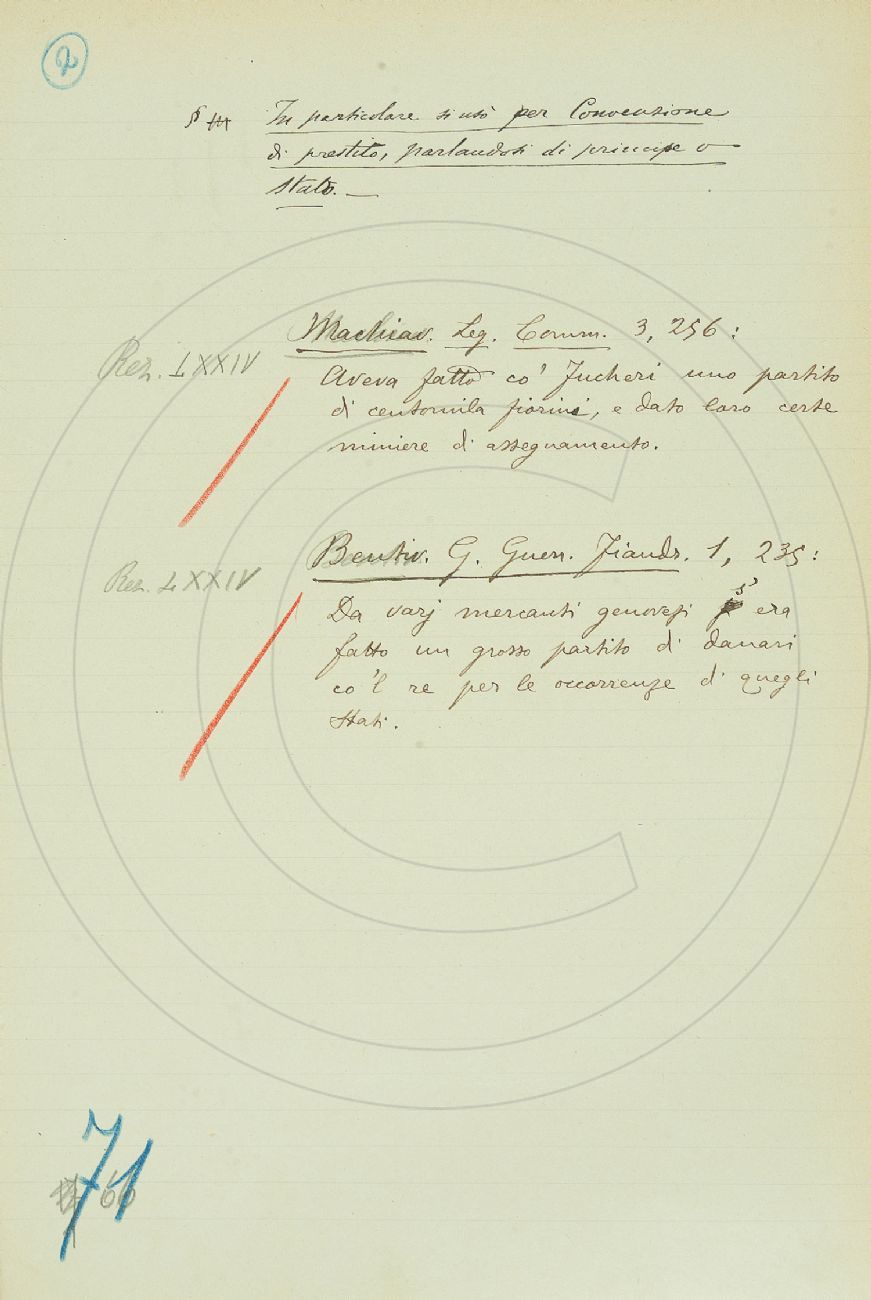 § III In particolare si usò per Convenzione
di prestito, parlandosi di principe o
Stato. —
Machiav. Leg. Comm. 3, 256:
Rez. LXXIV
Aveva fatto co' Fucheri uno partito
di centomila fiorini, e dato loro certe
miniere di assegnamento.
Bentiv. G. Guerr. Fiandr. 1, 235:
Rez. LXXIV
Da varj mercanti genovesi s' era
fatto un grosso partito di danari
co 'l re per le occorrenze di quegli
Stati.
71
66